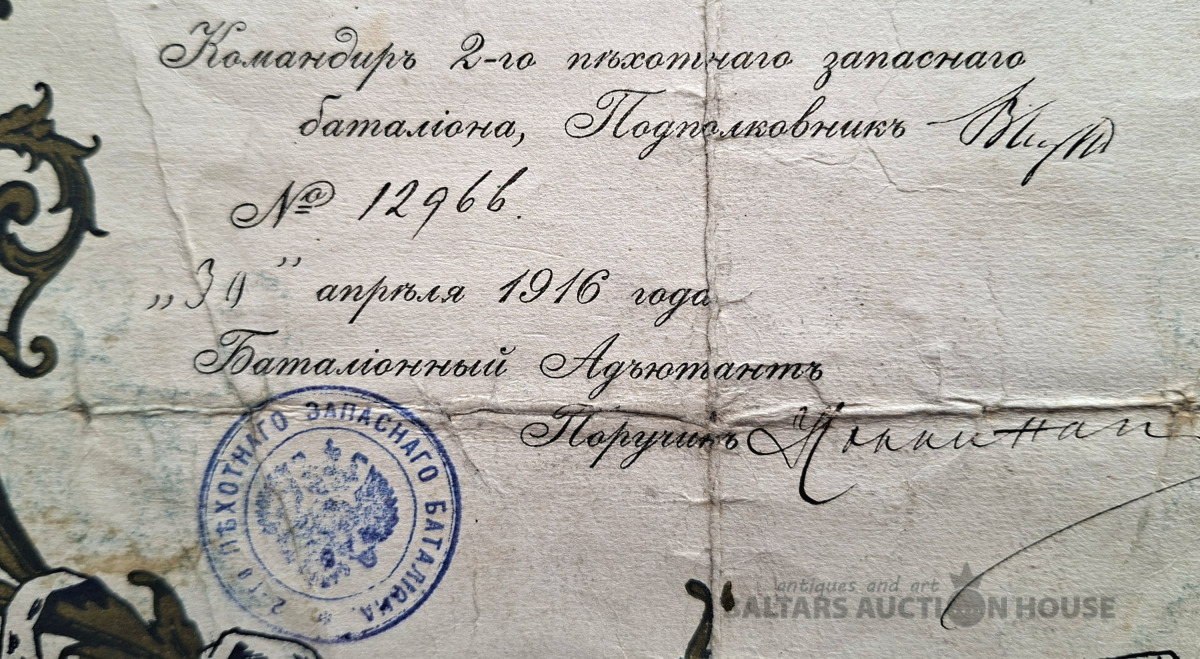 Командиръ 2-го пѣхотнаго запаснаго
баталіона, Подполковникъ
№ 12966.
„30" апрѣля 1916 года
Баталіонный Адъютантъ
Поручикъ
2-ГО ПѢХОТНАГО ЗАПАСНАГО БАТАЛІОНА
antiques and art
BALTARS AUCTION HOUSE